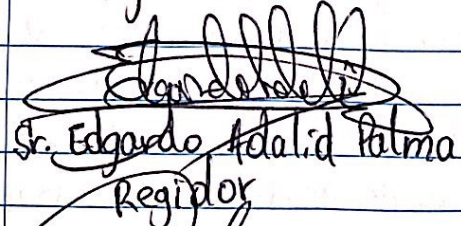 Sr. Edgardo Adalid Palma
Regidor